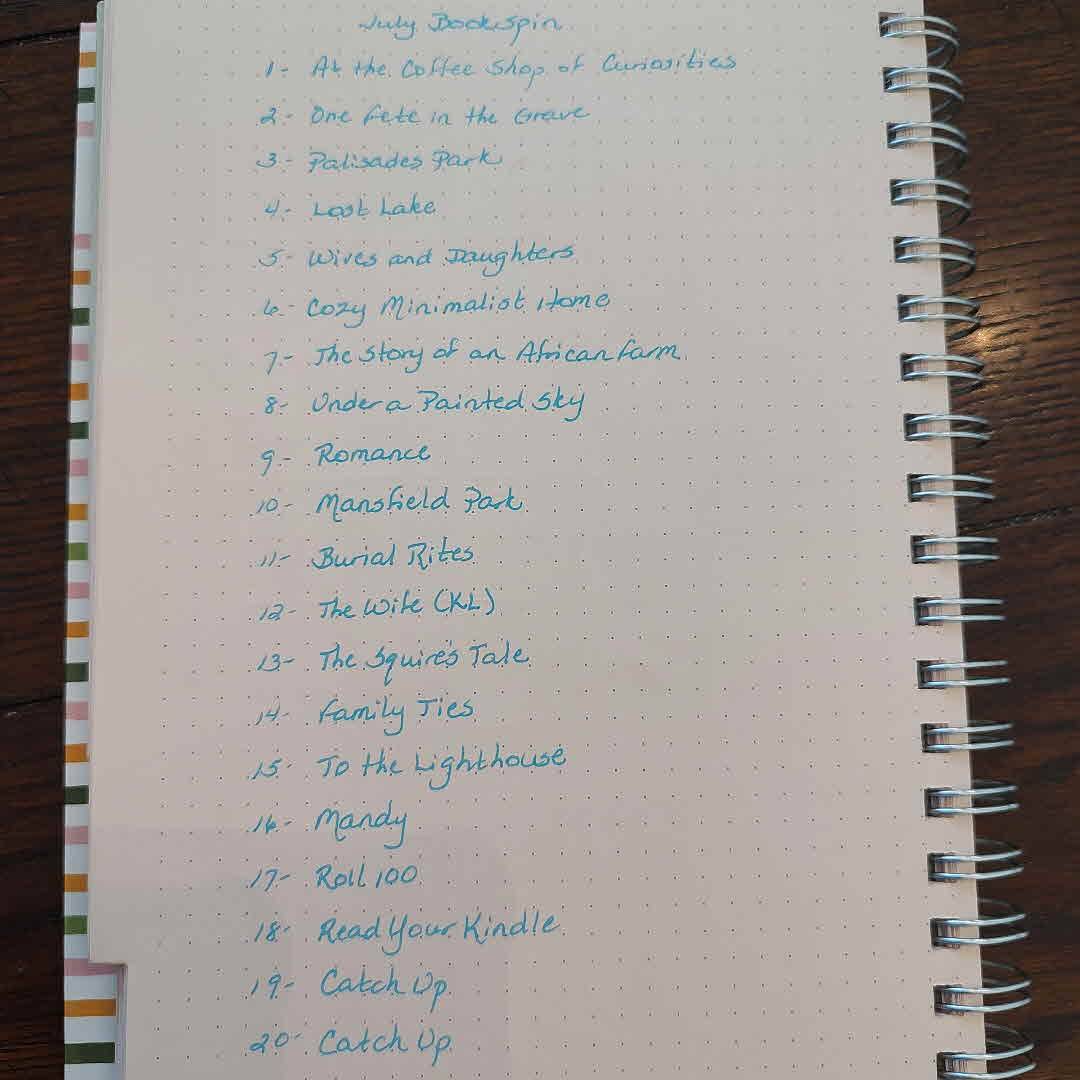 July Bookspin
1- At the Coffee Shop of Curiosities
2- One Fete in the Grave
3- Palisades Park
4- Lost Lake
5- Wives and Daughters
6- Cozy Minimalist Home
7- The Story of an African Farm
8- Under a Painted Sky
9- Romance
10- Mansfield Park
11- Burial Rites
12- The Wife (KL)
13- The Squire's Tale
14- Family Ties
15- To the Lighthouse
16- Mandy
17- Roll 100
18- Read Your Kindle
19- Catch Up
20- Catch Up